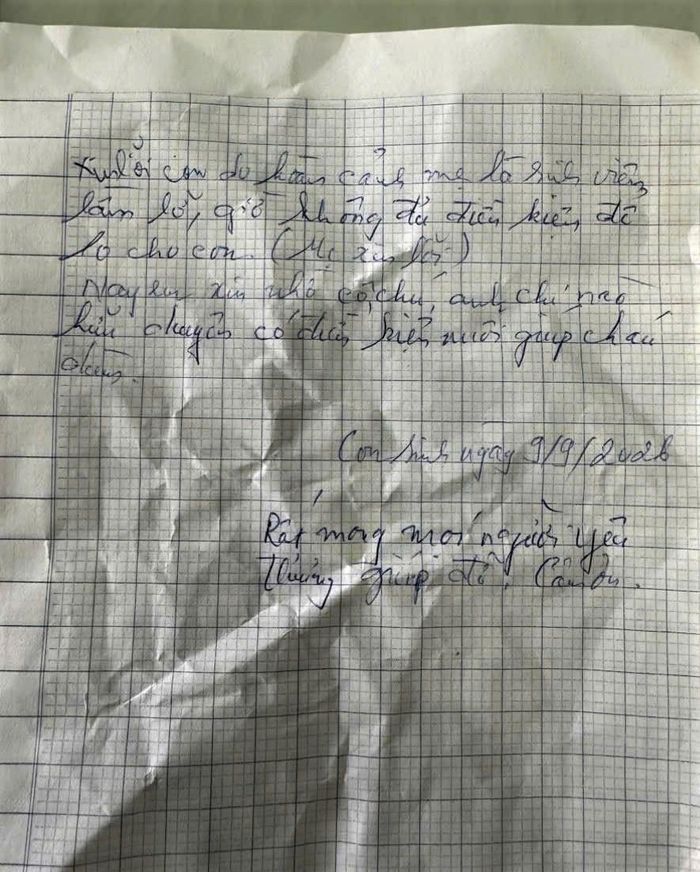 Xin lỗi con do hoàn cảnh mẹ là sinh viên
lầm lỡ, giờ không đủ điều kiện để
lo cho con. (Mẹ xin lỗi)
Nay em xin nhờ cô, chú, anh, chị nào
hữu duyên có điều kiện nuôi giúp cháu
Con sinh ngày 9/9/202
Rất mong mọi người yêu
thương giúp đỡ. Cảm ơn.